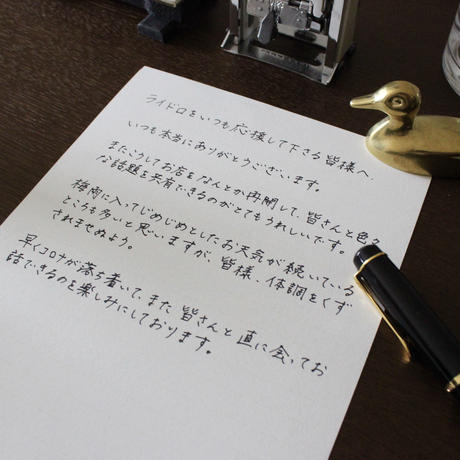 ライドロをいつも応援して下さる皆様へ、
いつも本当にありがとうございます。
またこうしてお店をなんとか再開して、皆さんと色々
な話題を共有できるのがとてもうれしいです。
梅雨に入ってじめじめとしたお天気が続いている
ところも多いと思いますが、皆様、体調をくず
されませぬよう。
早くコロナが落ち着いて、また皆さんと直に会ってお
話できるのを楽しみにしております。